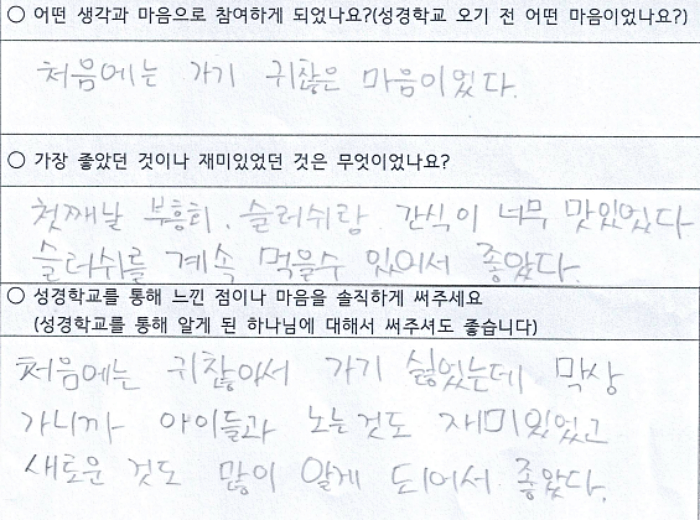 ○ 어떤 생각과 마음으로 참여하게 되었나요?(성경학교 오기 전 어떤 마음이었나요?)
처음에는 가기 귀찮은 마음이 있다.
○ 가장 좋았던 것이나 재미있었던 것은 무엇이었나요?
첫째날 부흥회. 슬러쉬랑 간식이 너무 맛있었다
슬러쉬를 계속 먹을수 있어서 좋았다.
○ 성경학교를 통해 느낀 점이나 마음을 솔직하게 써주세요
(성경학교를 통해 알게 된 하나님에 대해서 써주셔도 좋습니다)
처음에는 귀찮아서 가기 싫었는데 막상
가니까 아이들과 노는것도 재미있었고
새로운 것도 많이 알게 되어서 좋았다.